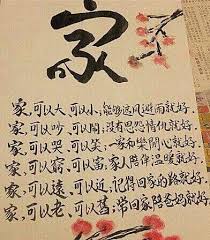 家
家,可以大,可以小,能夠遮风避雨就好.
家,可以吵,可以鬧,沒有恩怨情仇就好.
家,可以哭,可以笑,一家和樂開心就好.
家,可以窮,可以富,家人陪伴温暖就好.
家,可以遠,可以近,記得回家的路就好.
家,可以老,可以舊,常回家陪爸媽就好.